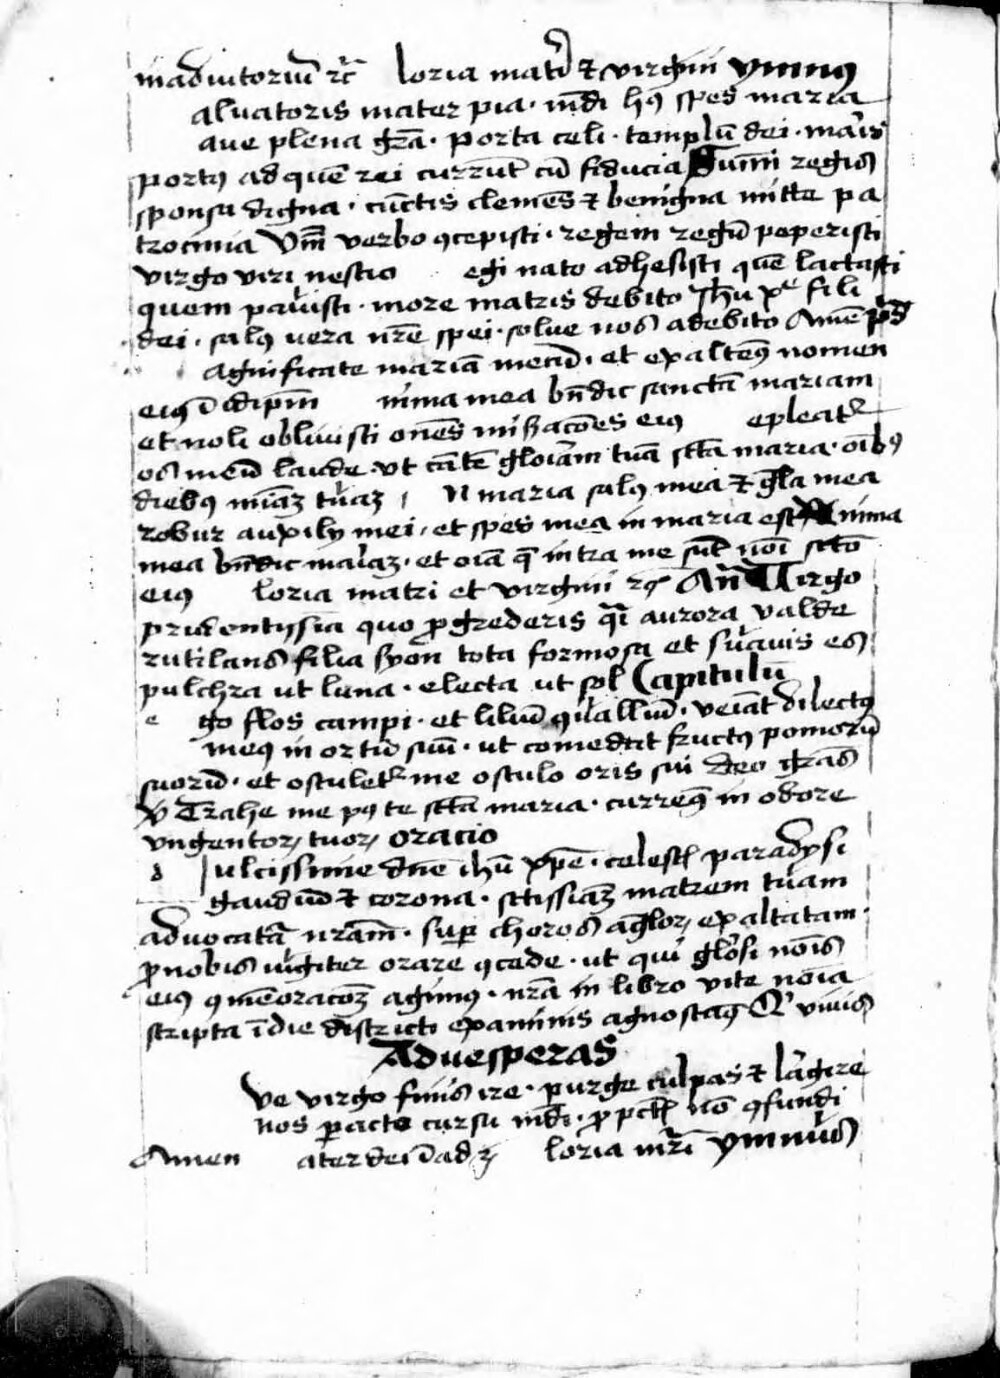 in adiutoriū ⁊c̄ loria mat̄ri ⁊ virgini ymnus
aluatoris mater pia · mūdi hꝯ spes maria
aue plena gr̄a · porta celi · templū dei · maris
portꝯ ad quē rei currūt cū fiducia Summi regis
sponsa digna · cūctis clemēs ⁊ benigna mitte pa
trocinia Vm̄ verbo ꝯcepisti · regem regū peperisti
virgo viri nescio egi nato adhesisti quē lactasti
quem pauisti · more matris debito Jh̄u xp̄e fili
dei · salꝯ vera nr̄e spei · solue nos a debito Amē ps̄
agnificate mariā mecū · et exaltemꝯ nomen
eiꝯ ī idip̄m nima mea bn̄dic sanctā mariam
et noli obliuisci om̄es mis̄acōes eiꝯ epleat᷑
os meū laude · vt cāte gloriam tuā sc̄tā maria · oīb
diebꝯ tuaꝝ N maria salꝯ mea ⁊ gl̄a mea
robur auxilij mei · et spes mea in maria est Anima
mea bn̄dic mariaꝫ · et oīa q̄ intra me sūt noī scīo
eiꝯ loria matri et virgini ⁊c An̄ Virgo
prudentissīa quo ꝓgrederis q̄i aurora valde
rutilans filia syon tota formosa et suauis es
pulchra ut luna · electa ut sol Capitulū
e go flos campi · et liliū ꝯualliū · veniat dilectꝯ
meꝯ in ortū suū · ut comedat fructꝯ pomorū
suorū · et osculet᷑ me osculo oris sui deo gr̄as
℣ Trahe me pꝯ te sc̄tā maria · curremꝯ in odore
vngentoꝝ tuoꝝ oracio
d ulcissime dn̄e ihū xp̄e · celest̄ paradysi
gaudiū ⁊ corona · sctissiaꝫ matrem tuam
aduocatā nr̄am · sup̄ choros āgloꝝ exaltatam ·
ꝓ nobis iugiter orare ꝯcede · ut qui gl̄osi nōis
eiꝯ ꝯmēoracōꝫ agimꝯ · nr̄a in libro vite nōia
scripta ī die districti examinis agnoscamꝯ Qͥ viuis
Ad vesperas
ve virgo finis ire · purge culpas ⁊ largire
nos peracto cursu mūdi · ꝓ pctīs nō ꝯfundi
Amen ater dei ī ad ⁊ loria mr̄i ymnus